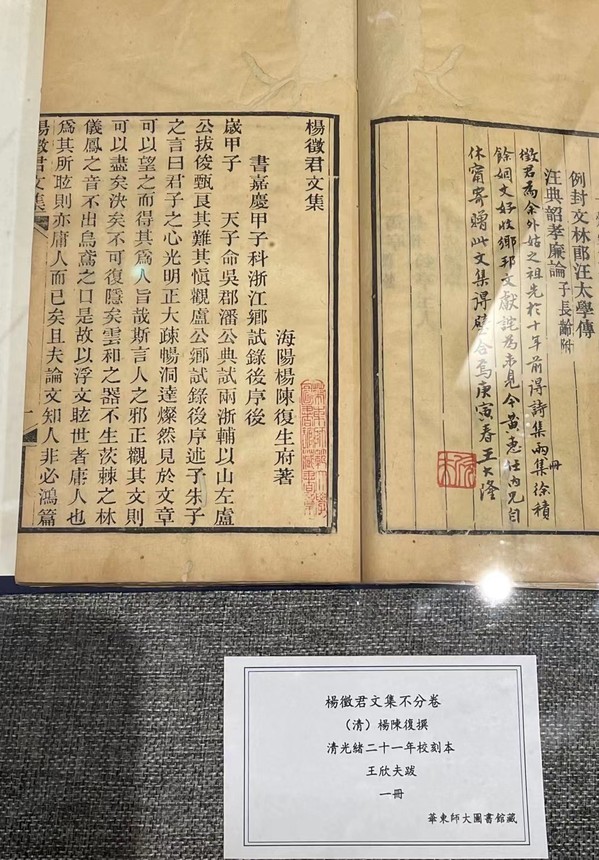 例封文林郎汪太學傳
汪典韶孝廉論 子長齡附
徵君爲余外姑之祖先於十年前得詩集兩集冊徐積
餘姻丈好收鄉邦文獻詫爲未見今黃惠任內兄自
休甯寄贈此文集得璧合焉庚寅春王大隆
楊徵君文集
海陽楊陳復生府著
書嘉慶甲子科浙江鄉試錄後序後
歲甲子 天子命吳郡潘公典試兩浙輔以山左盧
公拔俊甄良其難其愼觀盧公鄉試錄後序述子朱子
之言曰君子之心光明正大疎暢洞達燦然見於文章
可以望之而得其爲人旨哉斯言人之邪正觀其文則
可以盡矣決矣不可復隱矣雲和之器不生茨棘之林
儀鳳之音不出烏鳶之口是故以浮文眩世者庸人也
爲其所眩則亦庸人而已矣且夫論文知人非必鴻篇
楊徵君文集
一
楊徵君文集不分卷
（清）楊陳復撰
清光緒二十一年校刻本
王欣夫跋
一冊
華東師大圖書館藏